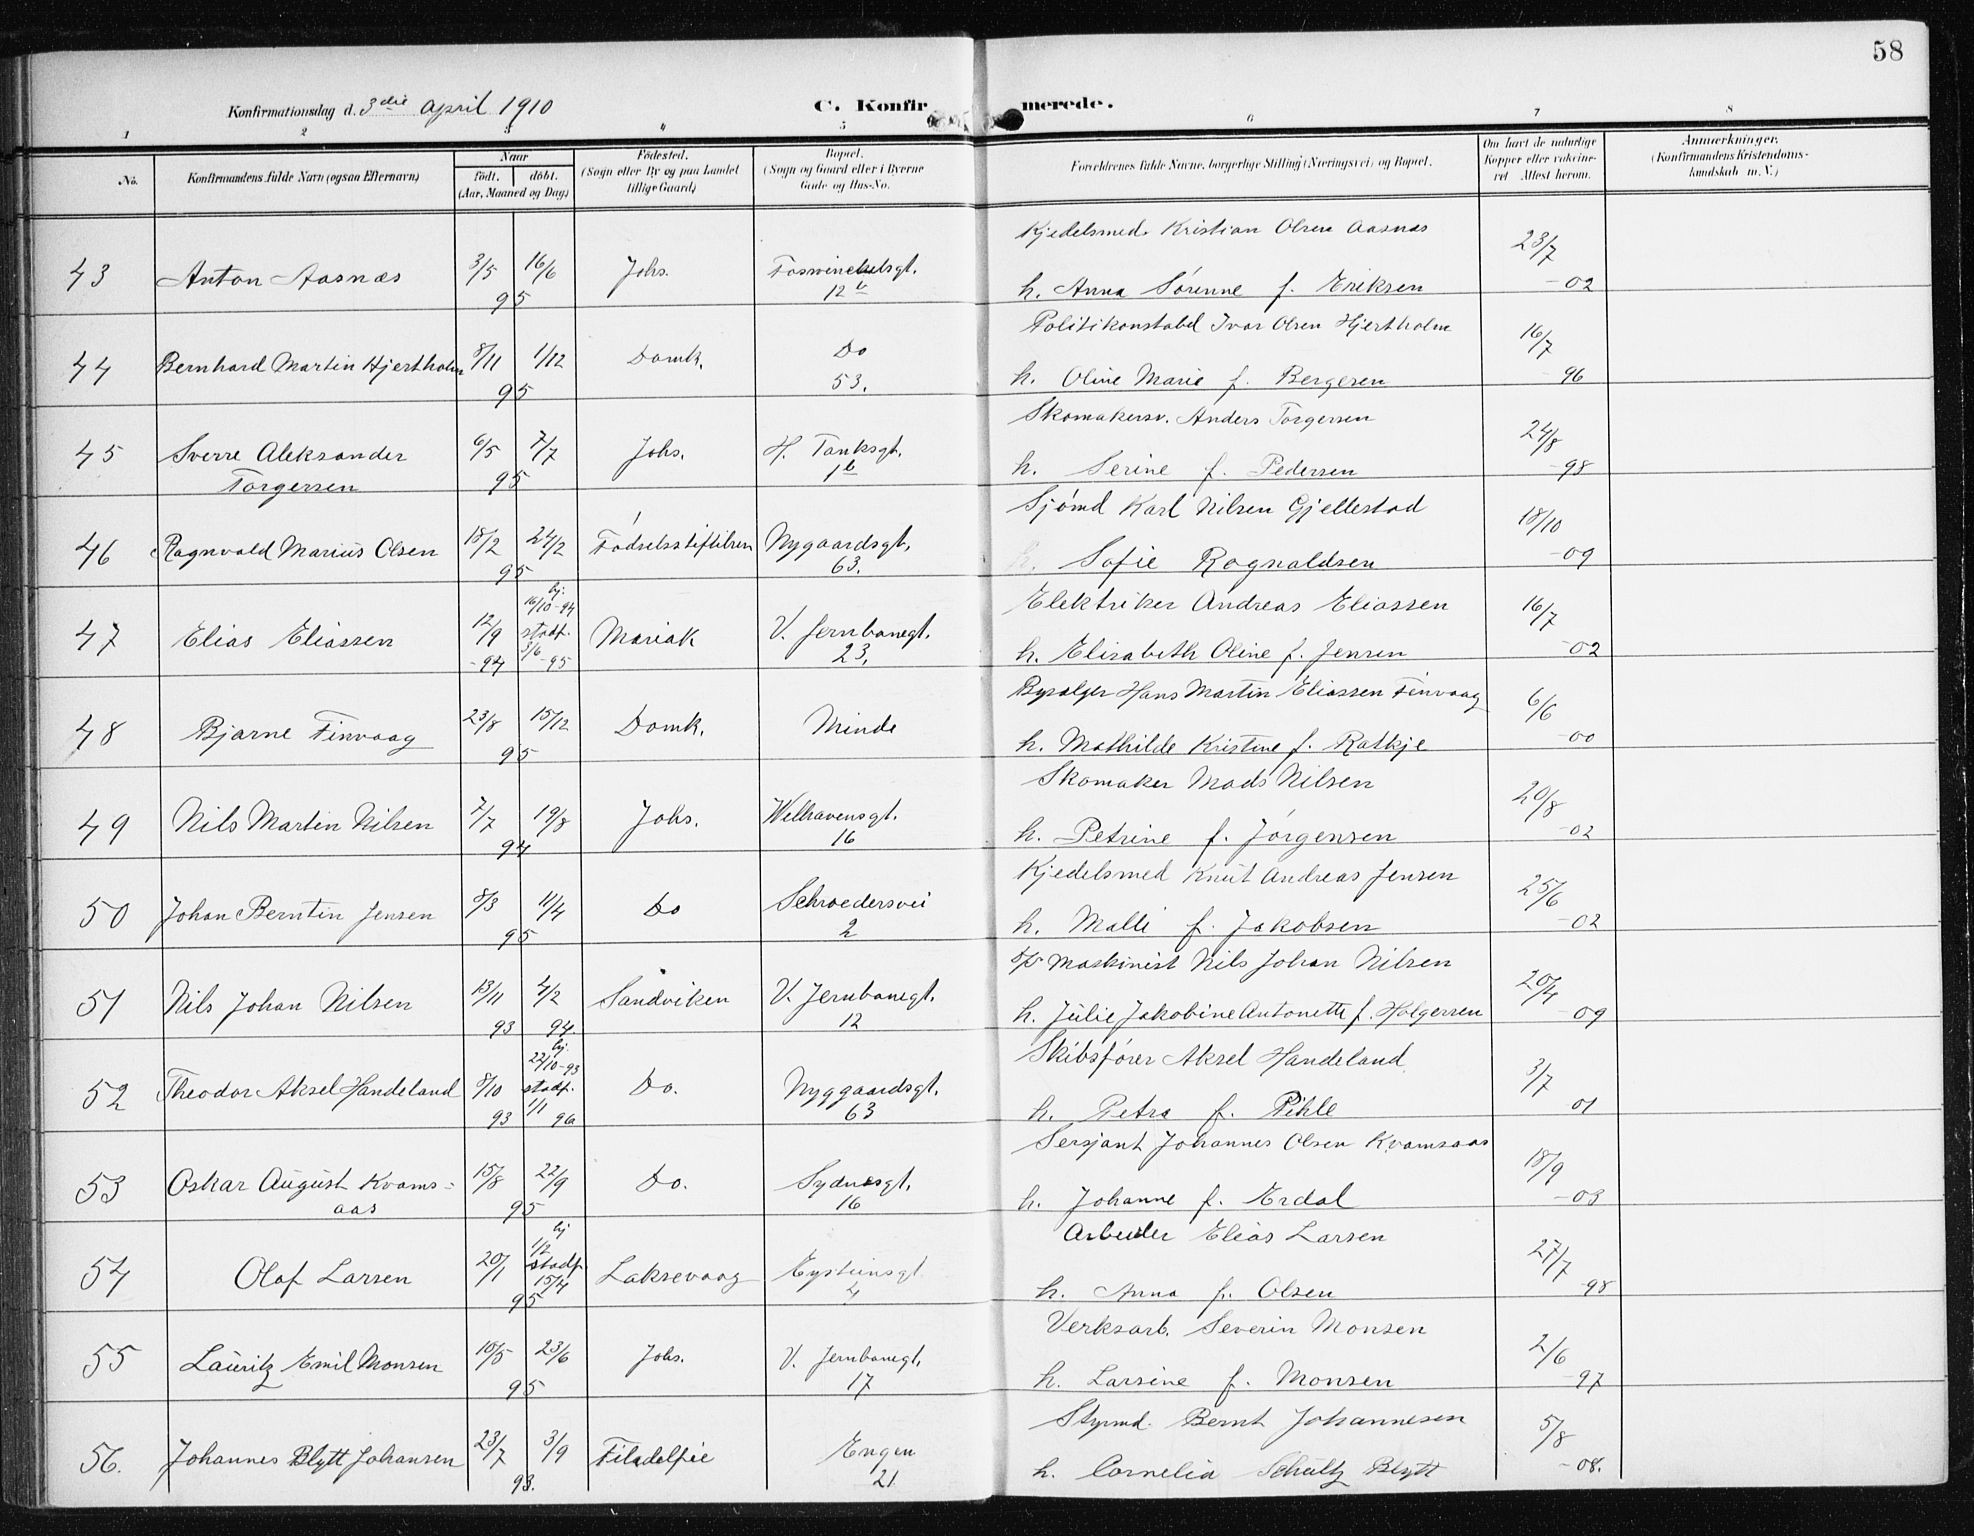 58
Konfirmationsdag d. 3die april 1910
C. Konfirmerede.
1 2 3 4 5 6 7 8
No. Konfirmandens fulde Navn (ogsaa Efternavn) Naar født. døbt. (Aar, Maaned og Dag) Fødested. (Sogn eller By og paa Landet tillige Gaard) Bopæl. (Sogn og Gaard eller i Byerne Gade og Hus-No. Forældrenes fulde Navne, borgerlige Stilling (Næringsvei) og Bopæl. Om havt de naturlige Kopper eller vakcineret Attest herom. Anmerkninger. (Konfirmandens Kristendomskundskab m. V.)
Kjedelsmed. Kristian Olsen Aasnæs
43 Anton Aasnæs 3/5 16/6 Johs. Foswinckelsgt. 23/7
95 12b h. Anna Sørenne f. Eriksen -02
Politikonstabel Ivar Olsen Hjertholm
44 Bernhard Martin Hjertholm 8/11 1/12 Domk. Do 16/7
95 53. h. Oline Marie f. Bergesen -96
Skomakersv. Anders Torgersen
45 Sverre Aleksander 6/5 7/7 Johs. H. Tanksgt. 24/8
Torgersen 95 1b h. Serine f. Pedersen -98
Sjömd Karl Nilsen Gjellestad
46 Ragnvald Marius Olsen 18/2 24/2 Fødselsstiftelsen Nygaardsgt. 18/10
95 63. Sofie Ragnaldsen -09
hj. 16/10-94 Elektriker Andreas Eliassen
47 Elias Eliassen 12/9 stadf. Mariak V. Jernbanegt. 16/7
-94 3/6-95 23. h. Elisabeth Oline f. Jensen -02
Bysælger Hans Martin Eliassen Finvaag
48 Bjarne Finvaag 23/8 15/12 Domk. Minde 6/6
95 h. Mathilde Kristine f. Ratkje -00
Skomaker Mads Nilsen
49 Nils Martin Nilsen 7/7 19/8 Johs. Welhavensgt. 20/8
94 16 h. Petrine f. Jörgensen -02
Kjedelsmed Knut Andreas Jensen
50 Johan Berntin Jensen 8/3 11/4 Do Schroedersvei 25/6
95 2 h. Malli f. Jakobsen -02
d/s Maskinist Nils Johan Nilsen
51 Nils Johan Nilsen 13/11 4/2 Sandviken V. Jernbanegt. 20/4
93 94 12 h. Julie Jakobine Antonette f. Holgersen -09
hj. 22/10-93 Skibsförer Aksel Handeland
52 Theodor Aksel Handeland 8/10 stadf. Do. Nyggaardsgt. 3/7
93 1/1 96 63 h. Petra f. Pihle 01
Sersjant Johannes Olsen Kvamsaas
53 Oskar August Kvams- 15/8 22/9 Do. Sydnesgt. 18/9
aas 95 16 h. Johanne f. Erdal -03
hj 1/2 Arbeider Elias Larsen
54 Olaf Larsen 20/1 stadf. 15/4 Laksevaag Eysteinsgt 27/7
95 4 h. Anna f. Olsen -98
Verksarb. Severin Monsen
55 Lauritz Emil Monsen 10/5 23/6 Johs. V. Jernbanegt. 2/6
95 17 h. Larsine f. Monsen -97
Styrmd. Bernt Johannesen
56. Johannes Blytt Johansen 23/7 3/9 Filadelfie Engen 5/8
93. 21 h. Cornelia Schultz Blytt -08.